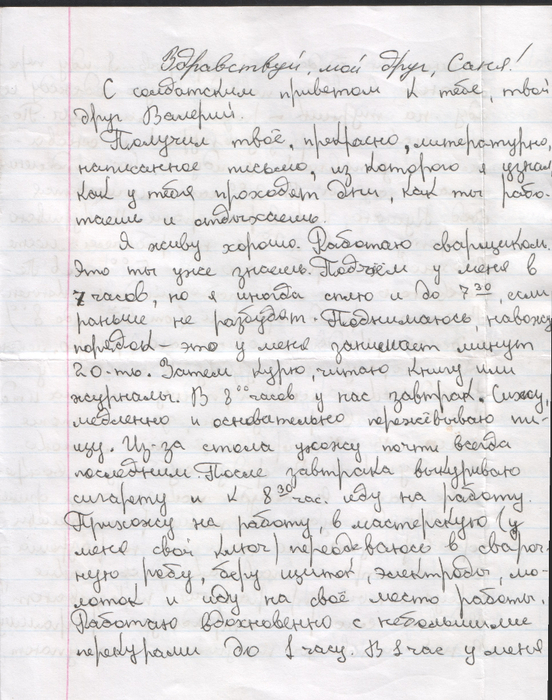 Здравствуй, мой друг, Саня!
С солдатским приветом к тебе, твой
друг Валерий.
Получил твоё, прекрасно, литературно,
написанное письмо, из которого я узнал
как у тебя проходят дни, как ты рабо-
таешь и отдыхаешь.
Я живу хорошо. Работаю сварщиком.
Это ты уже знаешь. Подъём у меня в
7 часов, но я иногда сплю и до 7 30, если
раньше не разбудят. Поднимаюсь, навожу
порядок – это у меня занимает минут
20-ть. Затем курю, читаю книгу или
журналы. В 8 00 часов у нас завтрак. Сижу,
медленно и основательно пережёвываю пи-
щу. Из-за стола ухожу почти всегда
последним. После завтрака выкуриваю
сигарету и к 8 30 час. иду на работу.
Прихожу на работу, в мастерскую (у
меня свой ключ) переодеваюсь в свароч-
ную робу, беру щиток, электроды, мо-
лоток и иду на своё место работы.
Работаю вдохновенно с небольшими
перекурами до 1 часу. В 1 час у меня